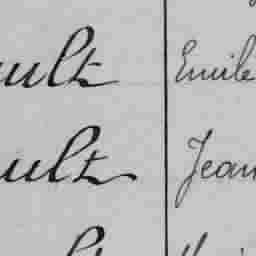 ult Emile
ult Jean